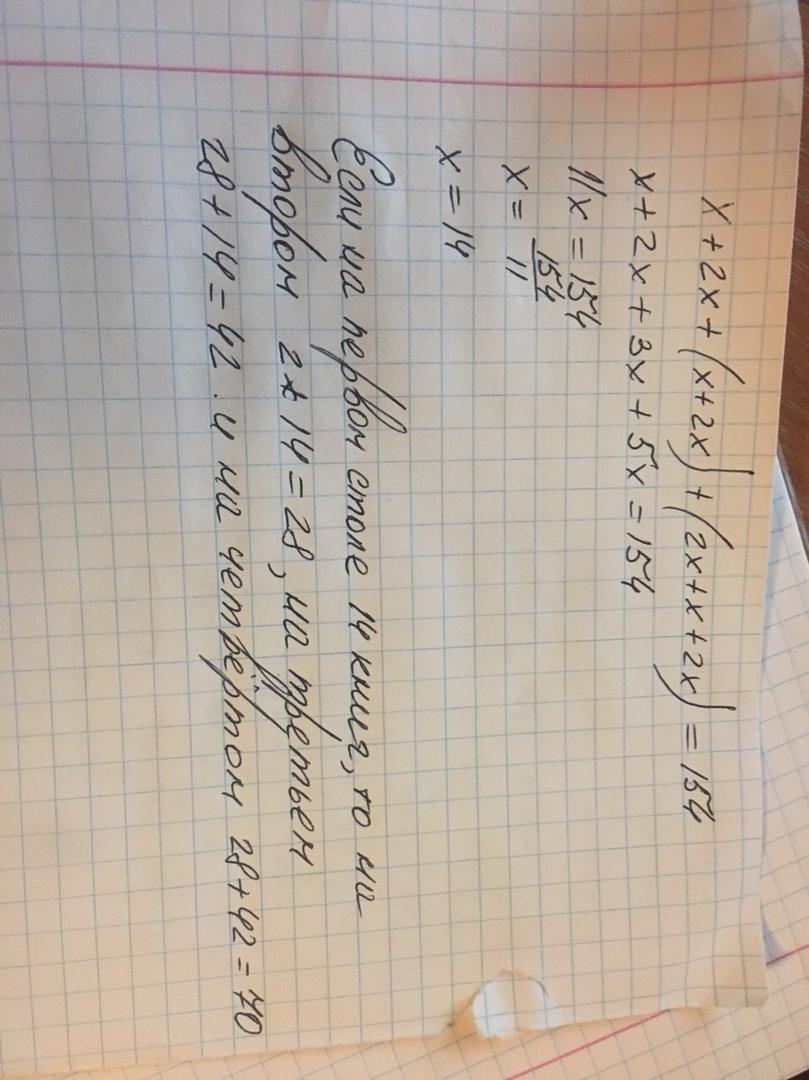 x + 2x + (x+2x) + (2x+x+2x) = 154
x + 2x + 3x + 5x = 154
11x = 154
x = 154/11
x = 14
Если на первом столе 14 книг, то на
втором 2*14 = 28, на третьем
28+14=42. и на четвёртом 28+42=70